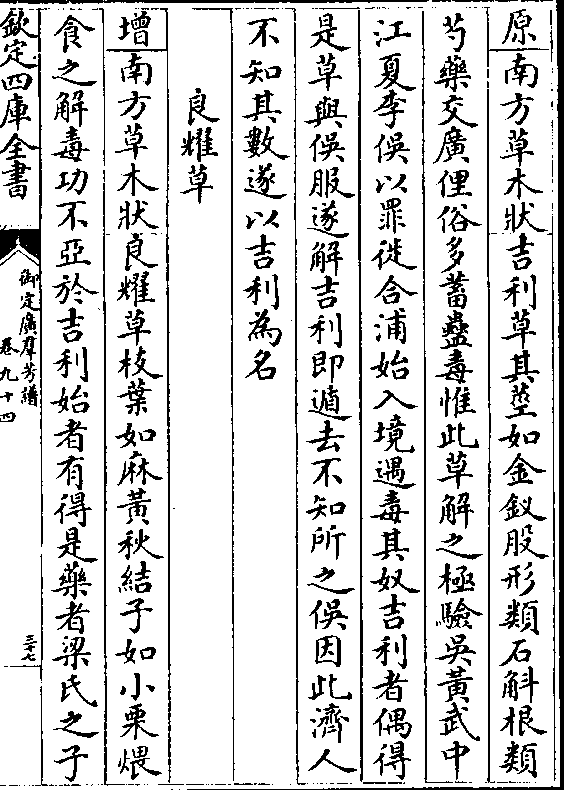 原南方草木狀吉利草其莖如金釵股形類石斛根類
芍藥交廣俚俗多蓄蠱毒惟此草解之極驗吳黃武中
江夏李俁以罪徙合浦始入境遇毒其奴吉利者偶得
是草與俁服遂解吉利即遁去不知所之俁因此濟人
不知其數遂以吉利為名
良耀草
增南方草木狀良耀草枝葉如麻黃秋結子如小粟煨
食之解毒功不亞於吉利始者有得是藥者梁氏之子
欽定四庫全書
御定廣羣芳譜
卷九十四
三十七